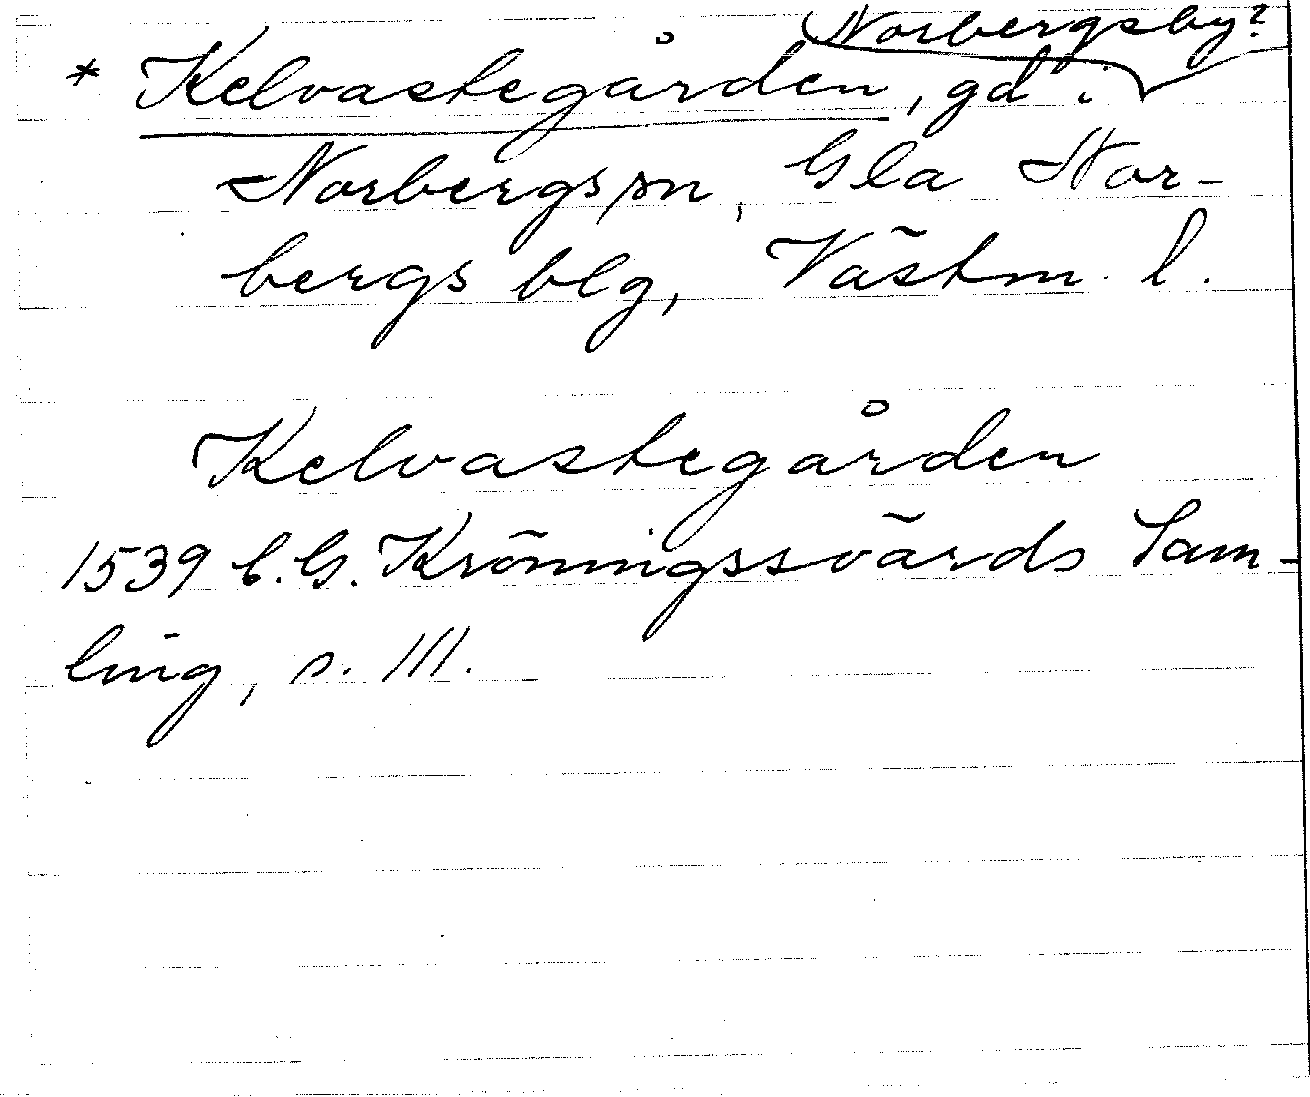 Norbergsby?
* Kelvastegården, gd i
Norbergs sn, Gla Nor-
bergs blg, Västm. l.
Kelvastegården
1539 C.G. Kröningssvärds Sam-
ling, s. 111.